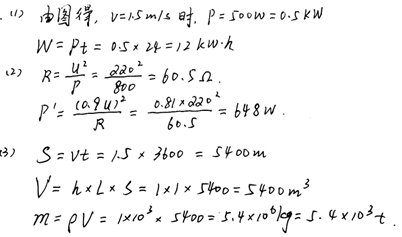 (1) 由图得, v=1.5m/s 时, P=500W=0.5KW
W=Pt=0.5×24=12 KW·h
(2) R=U²/P=220²/800=60.5Ω.
P'=(0.9U)²/R=0.81×220²/60.5=648W.
(3) S=vt=1.5×3600=5400m
V=h×L×S=1×1×5400=5400m³
m=ρV=1×10³×5400=5.4×10⁶kg=5.4×10³t.